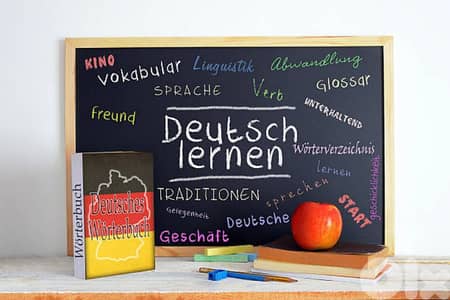 KINO
Vokabular
Linguistik
Abwandlung
SPRACHE
Verb
Glossar
Freund
UNTERHALTEND
Deutsch
lernen
Wörterverzeichnis
lernen
TRADITIONEN
sprechen
Gelegenheit
Deutsche
START
geschicklichkeit
Geschäft
Wörterbuch
Deutsches
Wörterbuch
olx